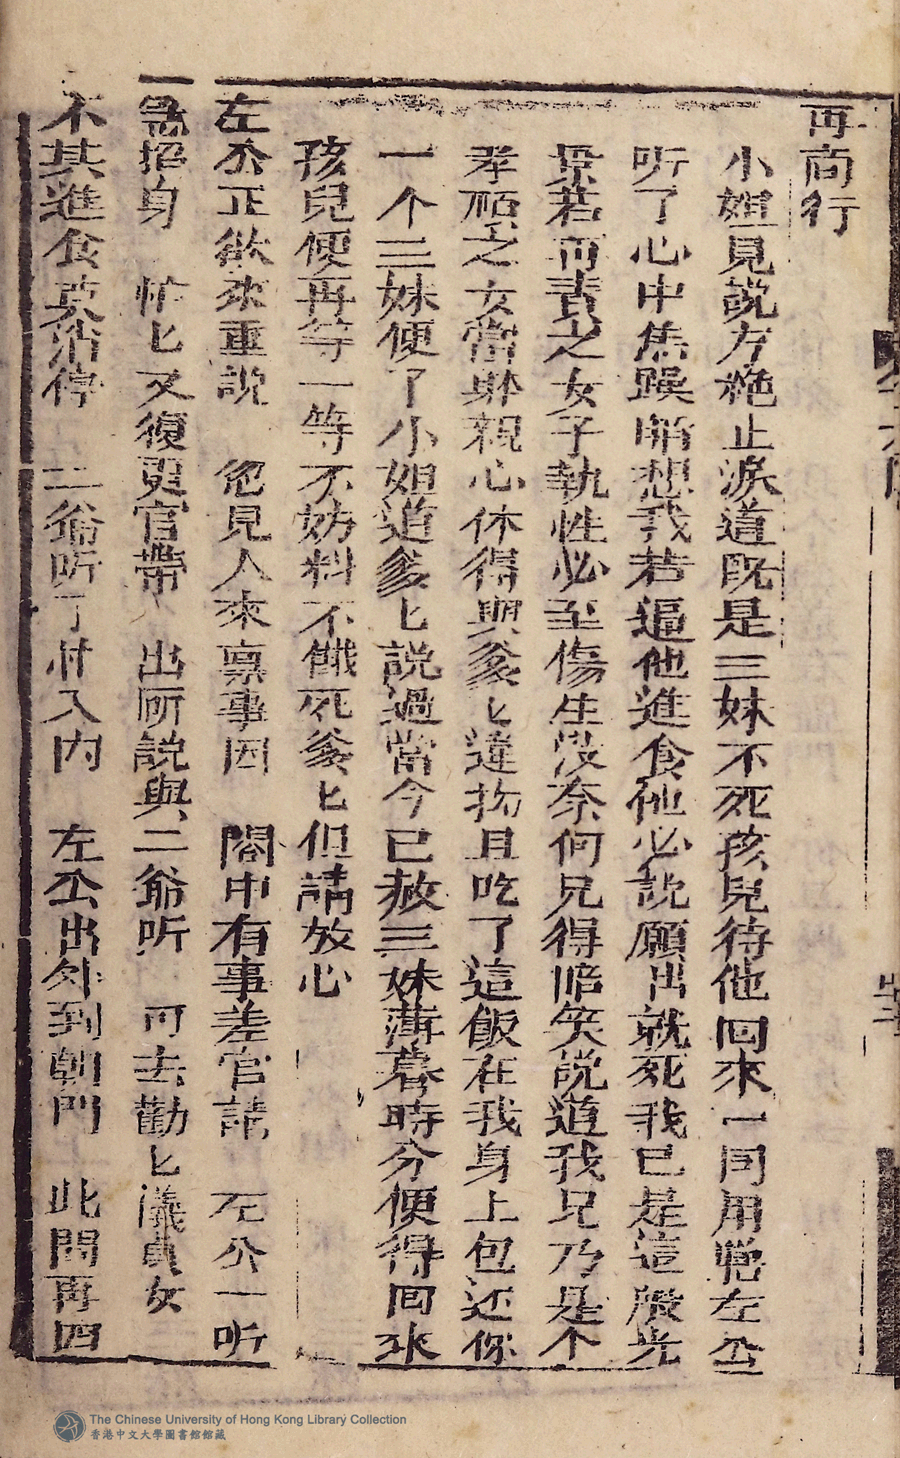 再商行
小姐見說方絶止淚道既是三妹不死孩兒待他回來一同用罷左公
听了心中焦躁暗想我若逼他進食他必說願出就死我已是這般光
景若而責之女子執性必至傷生没奈何只得陪笑說道我兒乃是个
孝順之女當躰親心休得與爹匕違拗且吃了這飯在我身上包还你
一个三妹便了小姐道爹匕說過當今已赦三妹薄暮時分便得回來
孩兒便再等一等不妨料不餓死爹匕但請放心
左公正欲來重說 忽見人來禀事因 閣中有事差官請 左公一听
急招身 忙匕又復更官帶 出所說與二爺听 可去勸匕儀貞女
不其進食莫沾停 二爺听了忖入内 左公出外到朝門 此間再四
The Chinese University of Hong Kong Library Collection
香港中文大學圖書館館藏